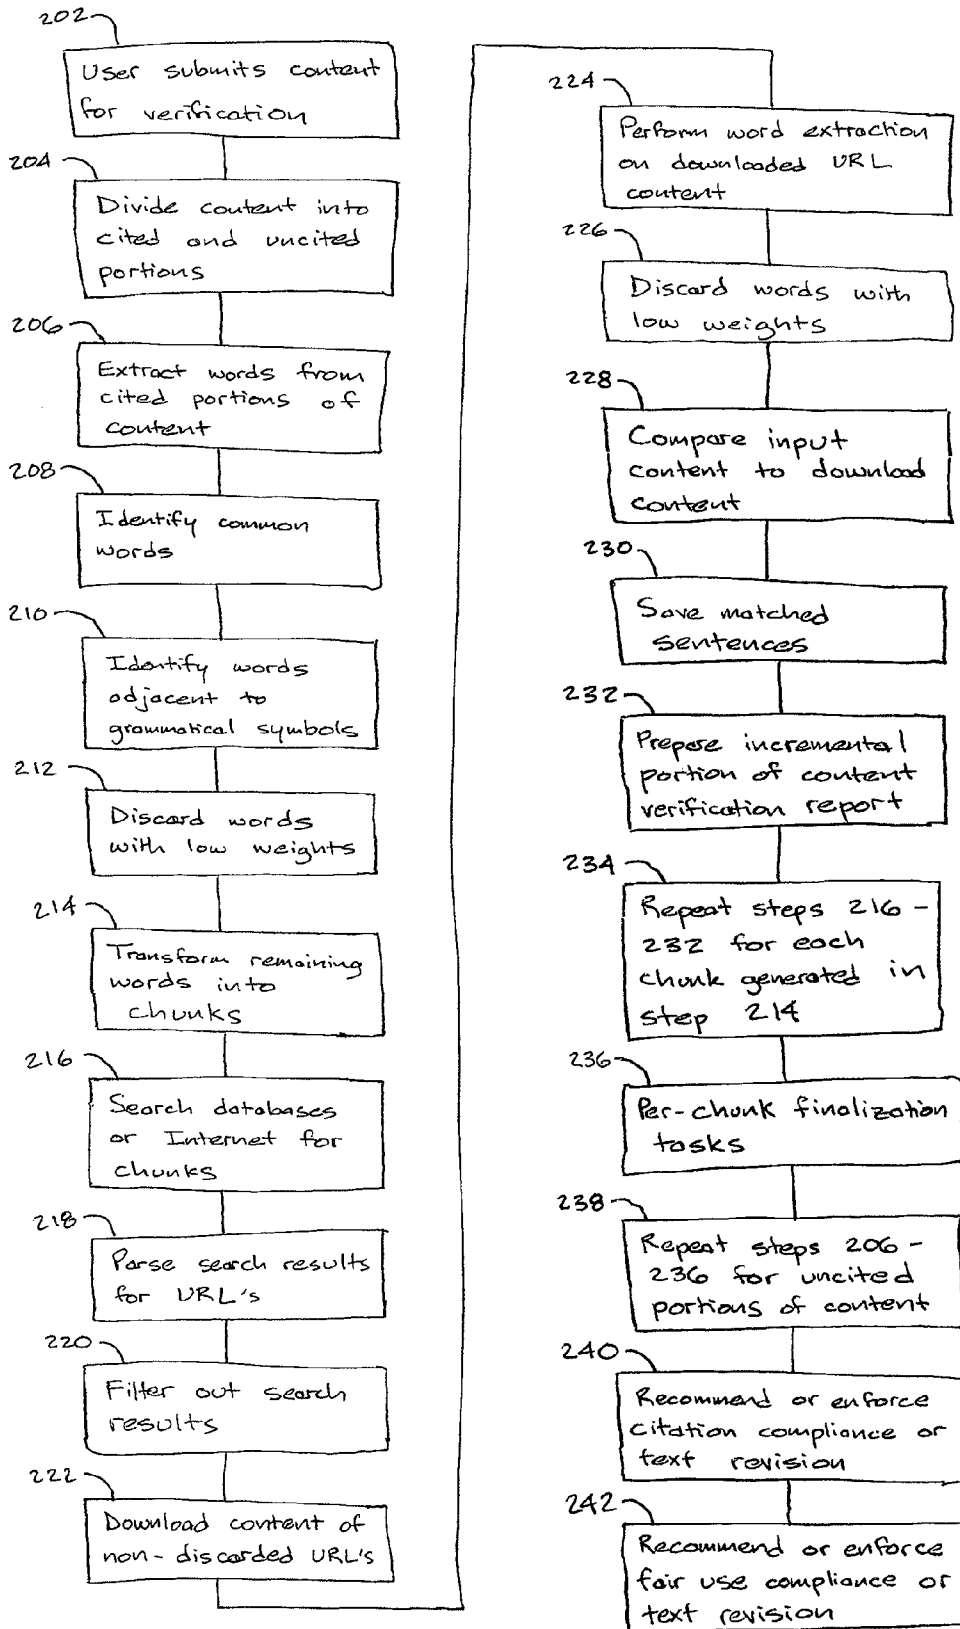 202
User submits content
for verification
204
Divide content into
cited and uncited
portions
206
Extract words from
cited portions of
content
208
Identify common
words
210
Identify words
adjacent to
grammatical symbols
212
Discard words
with low weights
214
Transform remaining
words into
chunks
216
Search databases
or Internet for
chunks
218
Parse search results
for URL's
220
Filter out search
results
222
Download content of
non-discarded URL's
224
Perform word extraction
on downloaded URL
content
226
Discard words with
low weights
228
Compare input
content to download
content
230
Save matched
sentences
232
Prepare incremental
portion of content
verification report
234
Repeat steps 216-
232 for each
chunk generated in
step 214
236
Per-chunk finalization
tasks
238
Repeat steps 206-
236 for uncited
portions of content
240
Recommend or enforce
citation compliance or
text revision
242
Recommend or enforce
fair use compliance or
text revision